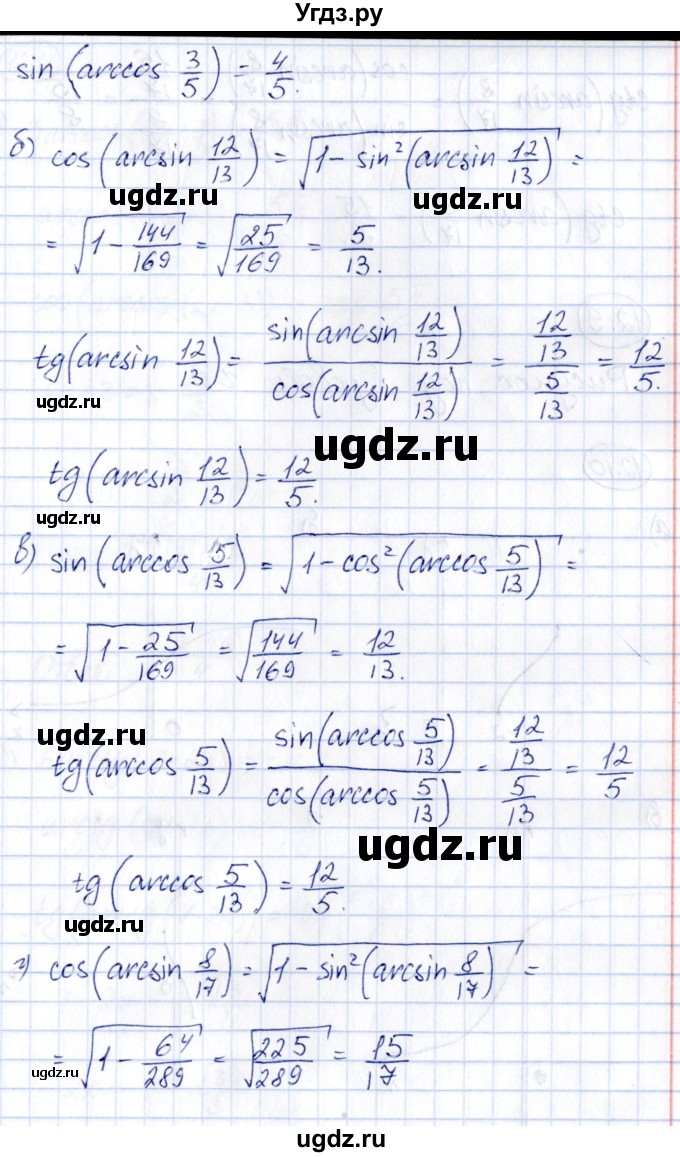 Угдз.ру
sin (arccos 3/5) = 4/5.
б) cos (arcsin 12/13) = √(1 - sin² (arcsin 12/13)) =
ugdz.ru ugdz.ru
= √(1 - 144/169) = √(25/169) = 5/13.
tg (arcsin 12/13) = sin(arcsin 12/13) / cos(arcsin 12/13) = (12/13) / (5/13) = 12/5.
ugdz.ru
ugdz.ru
tg (arcsin 12/13) = 12/5.
ugdz.ru
в) sin (arccos 5/13) = √(1 - cos² (arccos 5/13)) =
= √(1 - 25/169) = √(144/169) = 12/13.
ugdz.ru
tg (arccos 5/13) = sin(arccos 5/13) / cos(arccos 5/13) = (12/13) / (5/13) = 12/5
ugdz.ru
tg (arccos 5/13) = 12/5.
ugdz.ru
г) cos (arcsin 8/17) = √(1 - sin² (arcsin 8/17)) =
= √(1 - 64/289) = √(225/289) = 15/17
ugdz.ru ugdz.ru
ugdz.ru